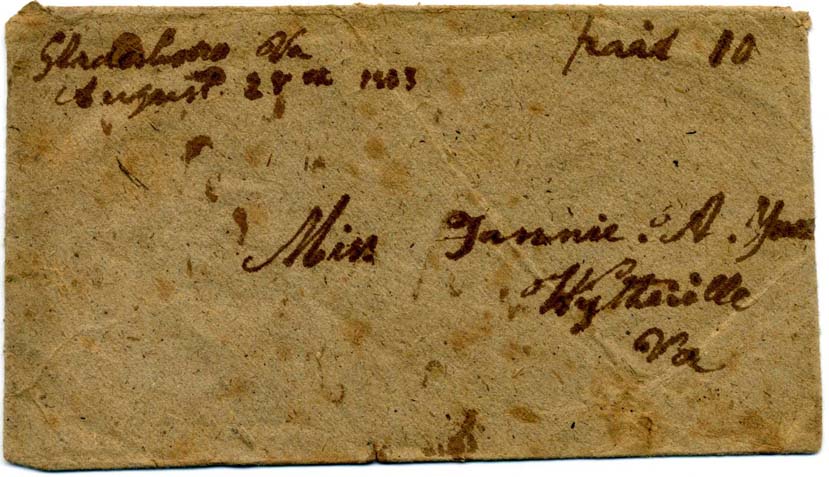 Gladesboro Va
August 28th 1863
paid 10
Miss Fannie. A.
Wytheville
Va